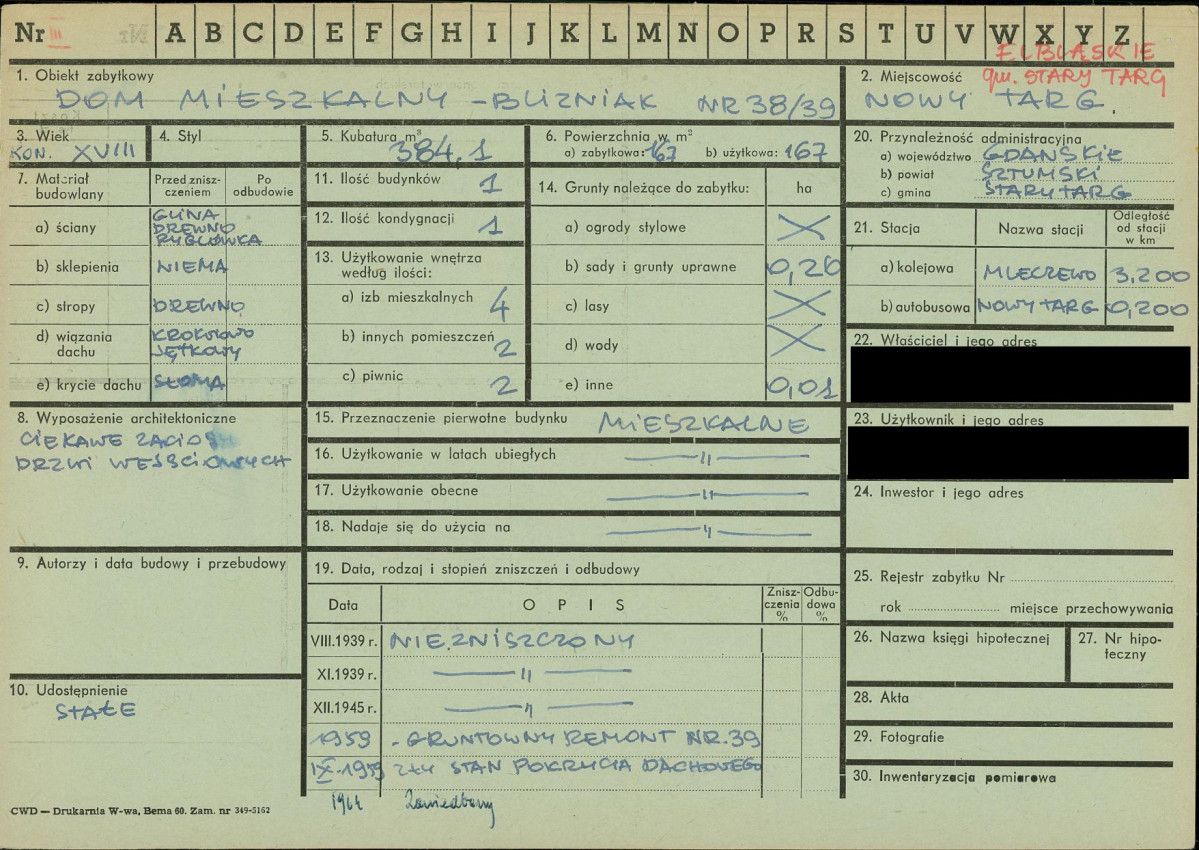 Nr III A B C D E F G H I J K L M N O P R S T U V W X Y Z
ELBLĄSKIE
gm. STARY TARG
1. Obiekt zabytkowy
DOM MIESZKALNY - BLIZNIAK NR 38/39
2. Miejscowość
NOWY TARG.
3. Wiek
KON. XVIII
4. Styl
5. Kubatura m³
384,1
6. Powierzchnia w m²
a) zabytkowa: 167 b) użytkowa: 167
20. Przynależność administracyjna
a) województwo GDAŃSKIE
b) powiat SZTUMSKI
c) gmina STARY TARG
7. Materiał budowlany
Przed zniszczeniem
Po odbudowie
a) ściany GLINA
DREWNO
RYGLÓWKA
b) sklepienia NIEMA
c) stropy DREWNO
d) wiązania dachu KROKWIOWO
JĘTKOWY
e) krycie dachu SŁOMA
11. Ilość budynków 1
12. Ilość kondygnacji 1
13. Użytkowanie wnętrza
według ilości:
a) izb mieszkalnych 4
b) innych pomieszczeń 2
c) piwnic 2
14. Grunty należące do zabytku: ha
a) ogrody stylowe X
b) sady i grunty uprawne 0,26
c) lasy X
d) wody X
e) inne 0,01
21. Stacja
Nazwa stacji
Odległość od stacji w km
a) kolejowa MLECZEWO 3,200
b) autobusowa NOWY TARG 0,200
22. Właściciel i jego adres
23. Użytkownik i jego adres
24. Inwestor i jego adres
8. Wyposażenie architektoniczne
CIEKAWE
DRZWI WEJŚCIOWYCH
15. Przeznaczenie pierwotne budynku MIESZKALNE
16. Użytkowanie w latach ubiegłych — „ —
17. Użytkowanie obecne — „ —
18. Nadaje się do użycia na — „ —
9. Autorzy i data budowy i przebudowy
10. Udostępnienie
STAŁE
19. Data, rodzaj i stopień zniszczeń i odbudowy
Data
OPIS
Zniszczenia %
Odbudowa %
VIII.1939 r. NIEZNISZCZONY
XI.1939 r. — „ —
XII.1945 r. — „ —
1959 - GRUNTOWNY REMONT NR.39
IX-1959 ZŁY STAN POKRYCIA DACHOWEGO
1964 Zaniedbany
25. Rejestr zabytku Nr
rok miejsce przechowywania
26. Nazwa księgi hipotecznej
27. Nr hipoteczny
28. Akta
29. Fotografie
30. Inwentaryzacja pomiarowa
CWD — Drukarnia W-wa, Bema 60. Zam. nr 349-5162